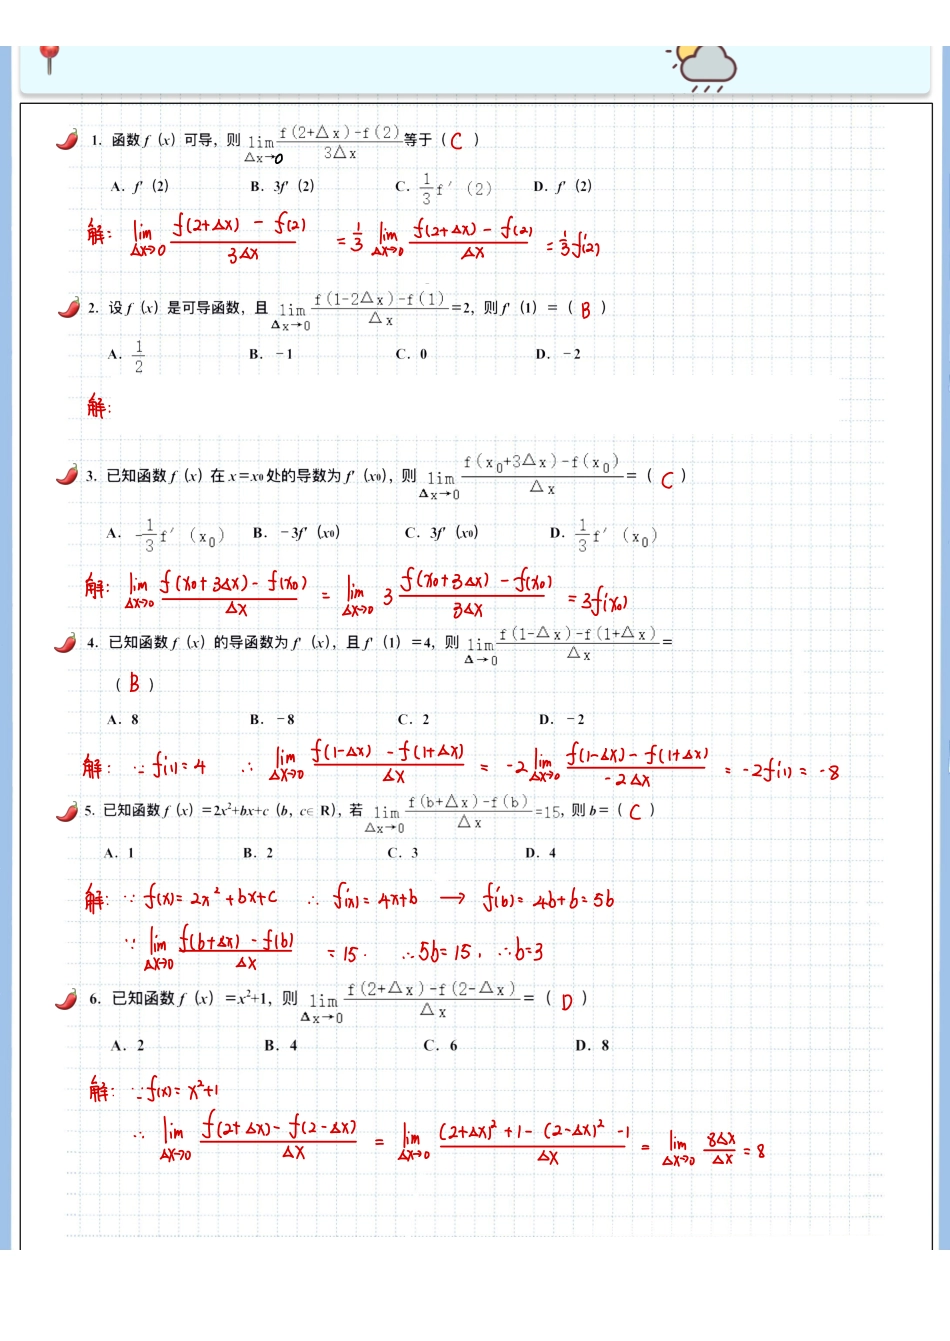 1. 函数 f (x) 可导，则 lim Δx→0 f(2+Δx)-f(2) / 3Δx 等于 ( C )
A. f′ (2) B. 3f′ (2) C. 1/3 f′ (2) D. f′ (2)
解: lim Δx→0 f(2+Δx) - f(2) / 3Δx = 1/3 lim Δx→0 f(2+Δx) - f(2) / Δx = 1/3 f′(2)
2. 设 f (x) 是可导函数，且 lim Δx→0 f(1-2Δx)-f(1) / Δx =2，则 f′ (1) = ( B )
A. 1/2 B. -1 C. 0 D. -2
解:
3. 已知函数 f (x) 在 x=x0 处的导数为 f′ (x0)，则 lim Δx→0 f(x0+3Δx)-f(x0) / Δx = ( C )
A. -1/3 f′ (x0) B. -3f′ (x0) C. 3f′ (x0) D. 1/3 f′ (x0)
解: lim Δx→0 f(x0+3Δx) - f(x0) / Δx = lim Δx→0 3 f(x0+3Δx) - f(x0) / 3Δx = 3f′(x0)
4. 已知函数 f (x) 的导函数为 f′ (x)，且 f′ (1) =4，则 lim Δ→0 f(1-Δx)-f(1+Δx) / Δx =
( B )
A. 8 B. -8 C. 2 D. -2
解: ∵ f′(1) = 4 ∴ lim Δx→0 f(1-Δx) - f(1+Δx) / Δx = -2 lim Δx→0 f(1-Δx) - f(1+Δx) / -2Δx = -2f′(1) = -8
5. 已知函数 f (x) =2x²+bx+c (b，c∈R)，若 lim Δx→0 f(b+Δx)-f(b) / Δx =15，则 b= ( C )
A. 1 B. 2 C. 3 D. 4
解: ∵ f(x) = 2x²+bx+c ∴ f′(x) = 4x+b → f′(b) = 4b+b = 5b
∵ lim Δx→0 f(b+Δx) - f(b) / Δx = 15. ∴ 5b = 15, ∴ b=3
6. 已知函数 f (x) =x²+1，则 lim Δx→0 f(2+Δx)-f(2-Δx) / Δx = ( D )
A. 2 B. 4 C. 6 D. 8
解: ∵ f(x) = x²+1
∴ lim Δx→0 f(2+Δx) - f(2-Δx) / Δx = lim Δx→0 (2+Δx)² + 1 - (2-Δx)² - 1 / Δx = lim Δx→0 8Δx / Δx = 8